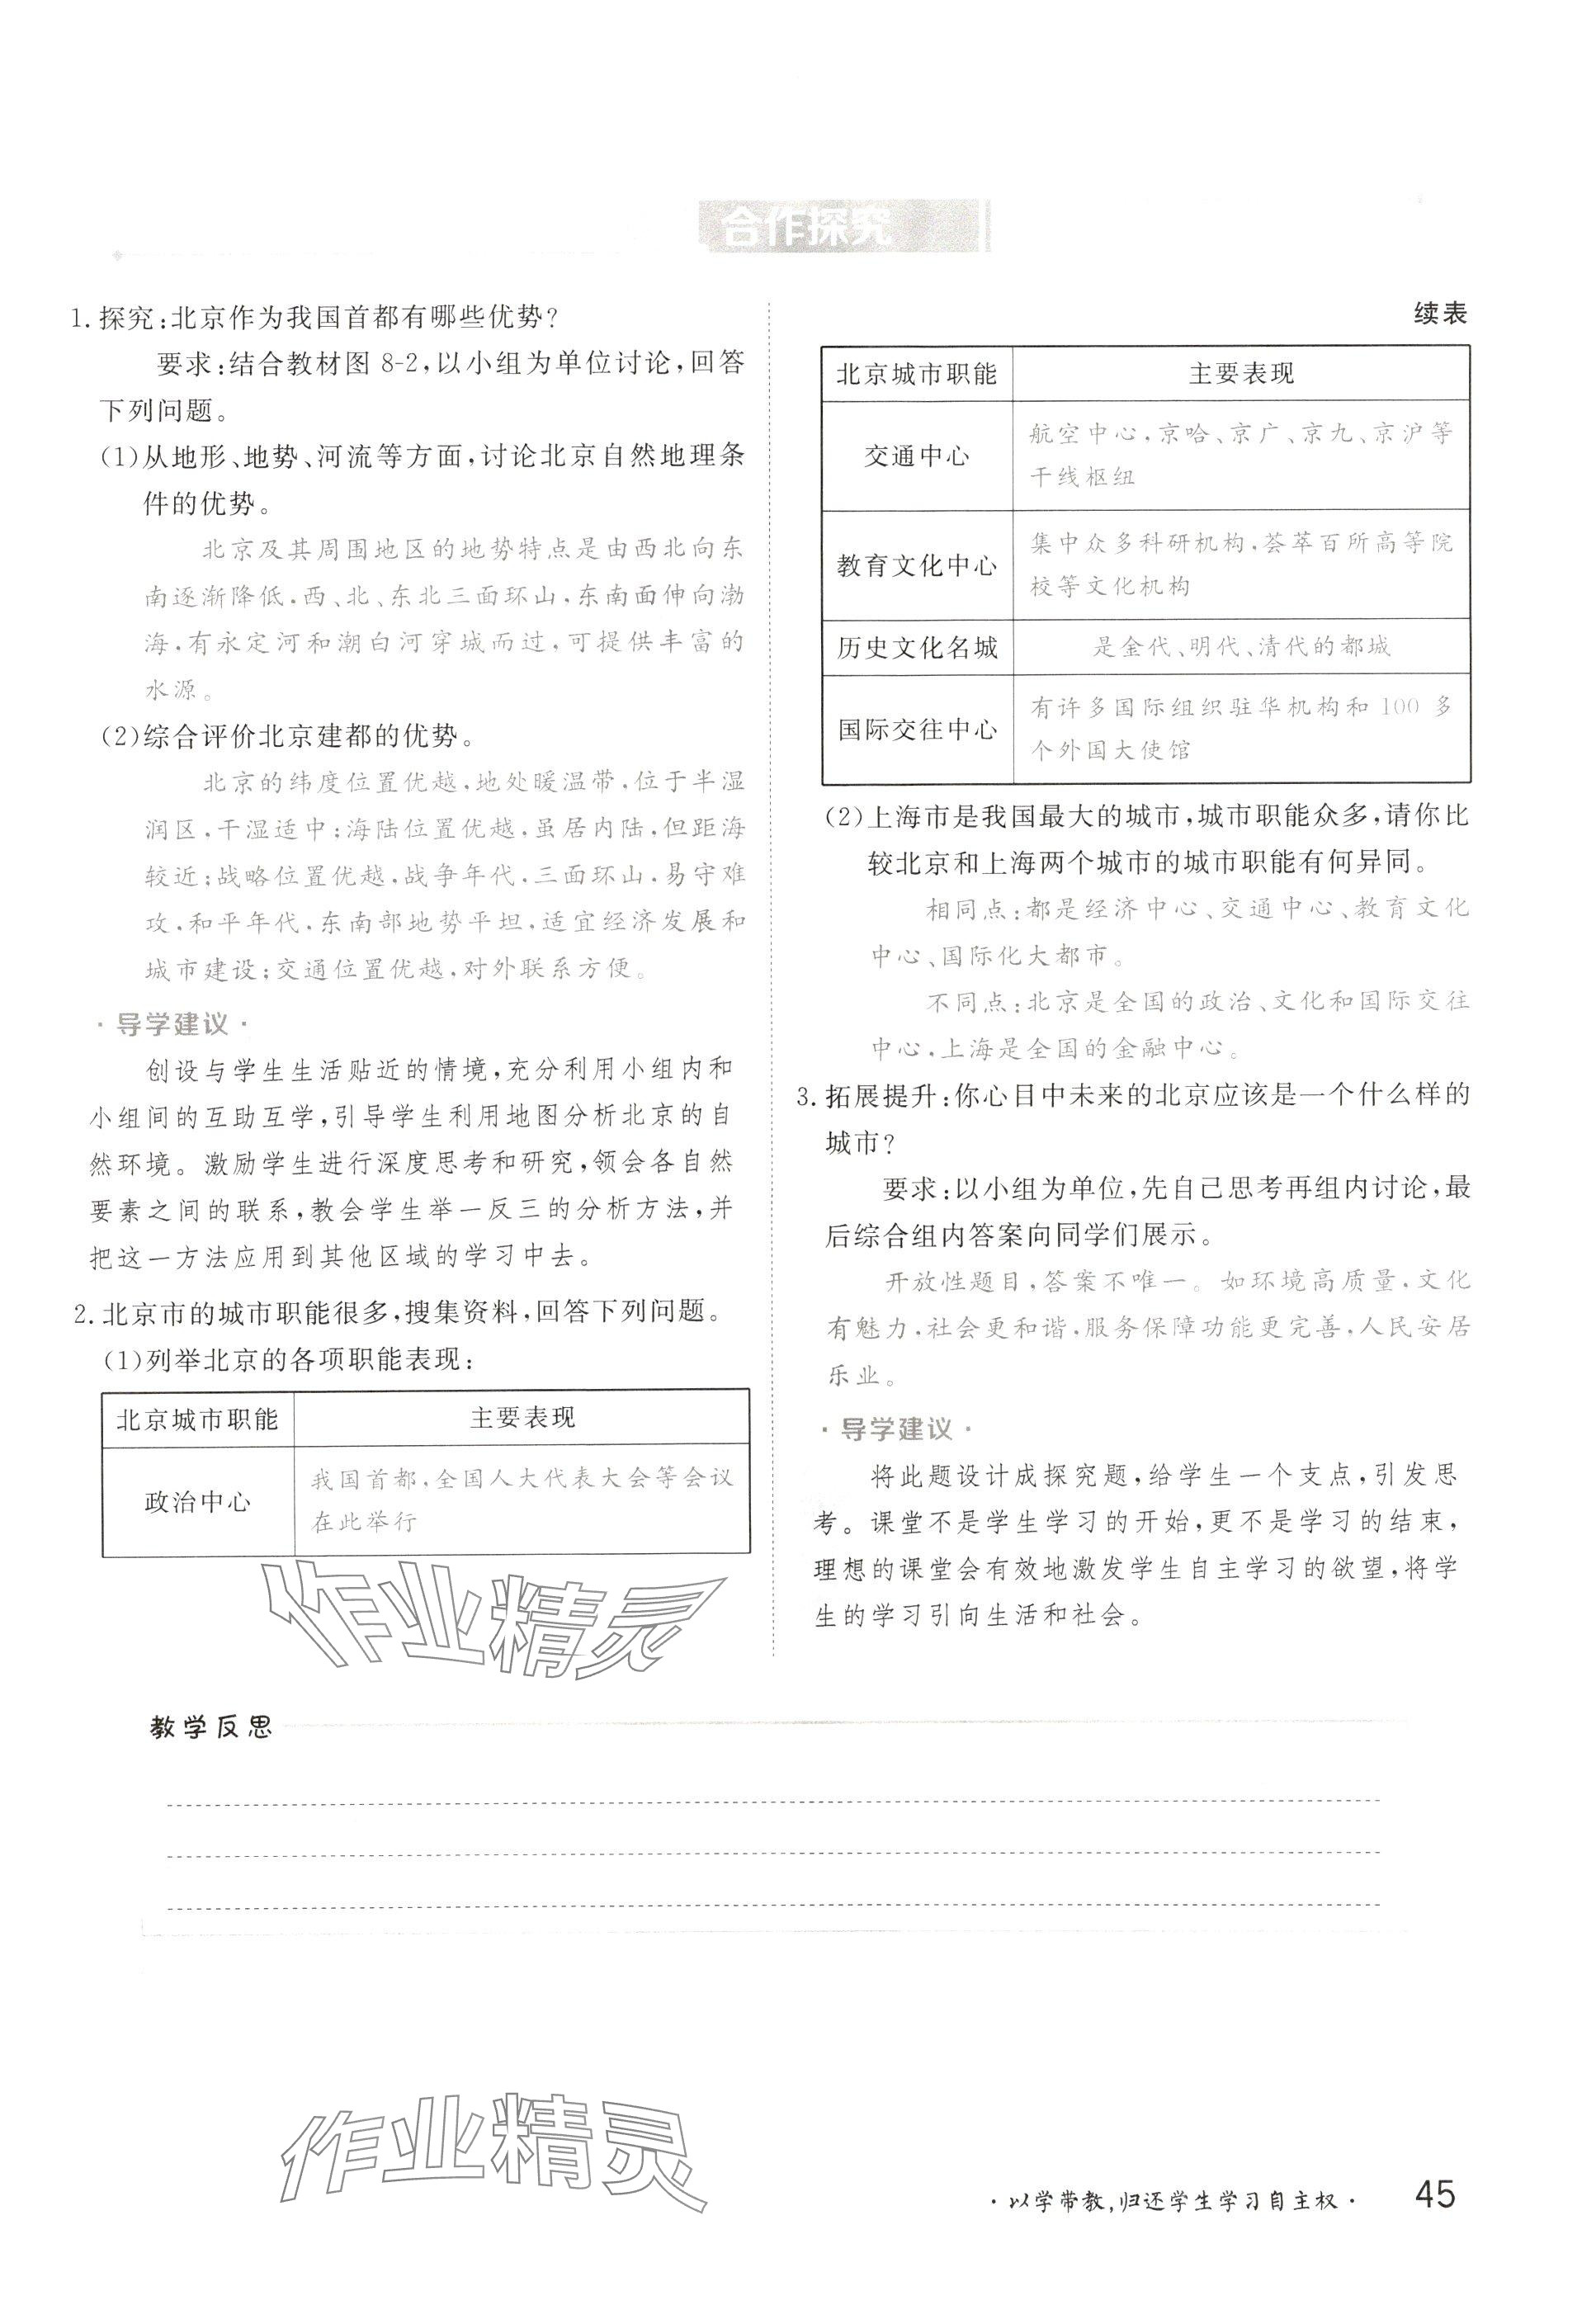 合作探究
1. 探究:北京作为我国首都有哪些优势?
要求:结合教材图 8-2,以小组为单位讨论,回答
下列问题。
(1)从地形、地势、河流等方面,讨论北京自然地理条
件的优势。
北京及其周围地区的地势特点是由西北向东
南逐渐降低,西、北、东北三面环山,东南面伸向渤
海,有永定河和潮白河穿城而过,可提供丰富的
水源。
(2)综合评价北京建都的优势。
北京的纬度位置优越,地处暖温带,位于半湿
润区,干湿适中;海陆位置优越,虽居内陆,但距海
较近;战略位置优越,战争年代,三面环山,易守难
攻,和平年代,东南部地势平坦,适宜经济发展和
城市建设;交通位置优越,对外联系方便。
·导学建议·
创设与学生生活贴近的情境,充分利用小组内和
小组间的互助互学,引导学生利用地图分析北京的自
然环境。激励学生进行深度思考和研究,领会各自然
要素之间的联系,教会学生举一反三的分析方法,并
把这一方法应用到其他区域的学习中去。
2. 北京市的城市职能很多,搜集资料,回答下列问题。
(1)列举北京的各项职能表现:
北京城市职能 主要表现
政治中心 我国首都,全国人大代表大会等会议
在此举行
续表
北京城市职能 主要表现
交通中心 航空中心,京哈、京广、京九、京沪等
干线枢纽
教育文化中心 集中众多科研机构,荟萃百所高等院
校等文化机构
历史文化名城 是金代、明代、清代的都城
国际交往中心 有许多国际组织驻华机构和 100 多
个外国大使馆
(2)上海市是我国最大的城市,城市职能众多,请你比
较北京和上海两个城市的城市职能有何异同。
相同点:都是经济中心、交通中心、教育文化
中心、国际化大都市。
不同点:北京是全国的政治、文化和国际交往
中心,上海是全国的金融中心。
3. 拓展提升:你心目中未来的北京应该是一个什么样的
城市?
要求:以小组为单位,先自己思考再组内讨论,最
后综合组内答案向同学们展示。
开放性题目,答案不唯一。如环境高质量,文化
有魅力,社会更和谐,服务保障功能更完善,人民安居
乐业。
·导学建议·
将此题设计成探究题,给学生一个支点,引发思
考。课堂不是学生学习的开始,更不是学习的结束,
理想的课堂会有效地激发学生自主学习的欲望,将学
生的学习引向生活和社会。
作业精灵
教学反思
作业精灵
·以学带教,归还学生学习自主权· 45